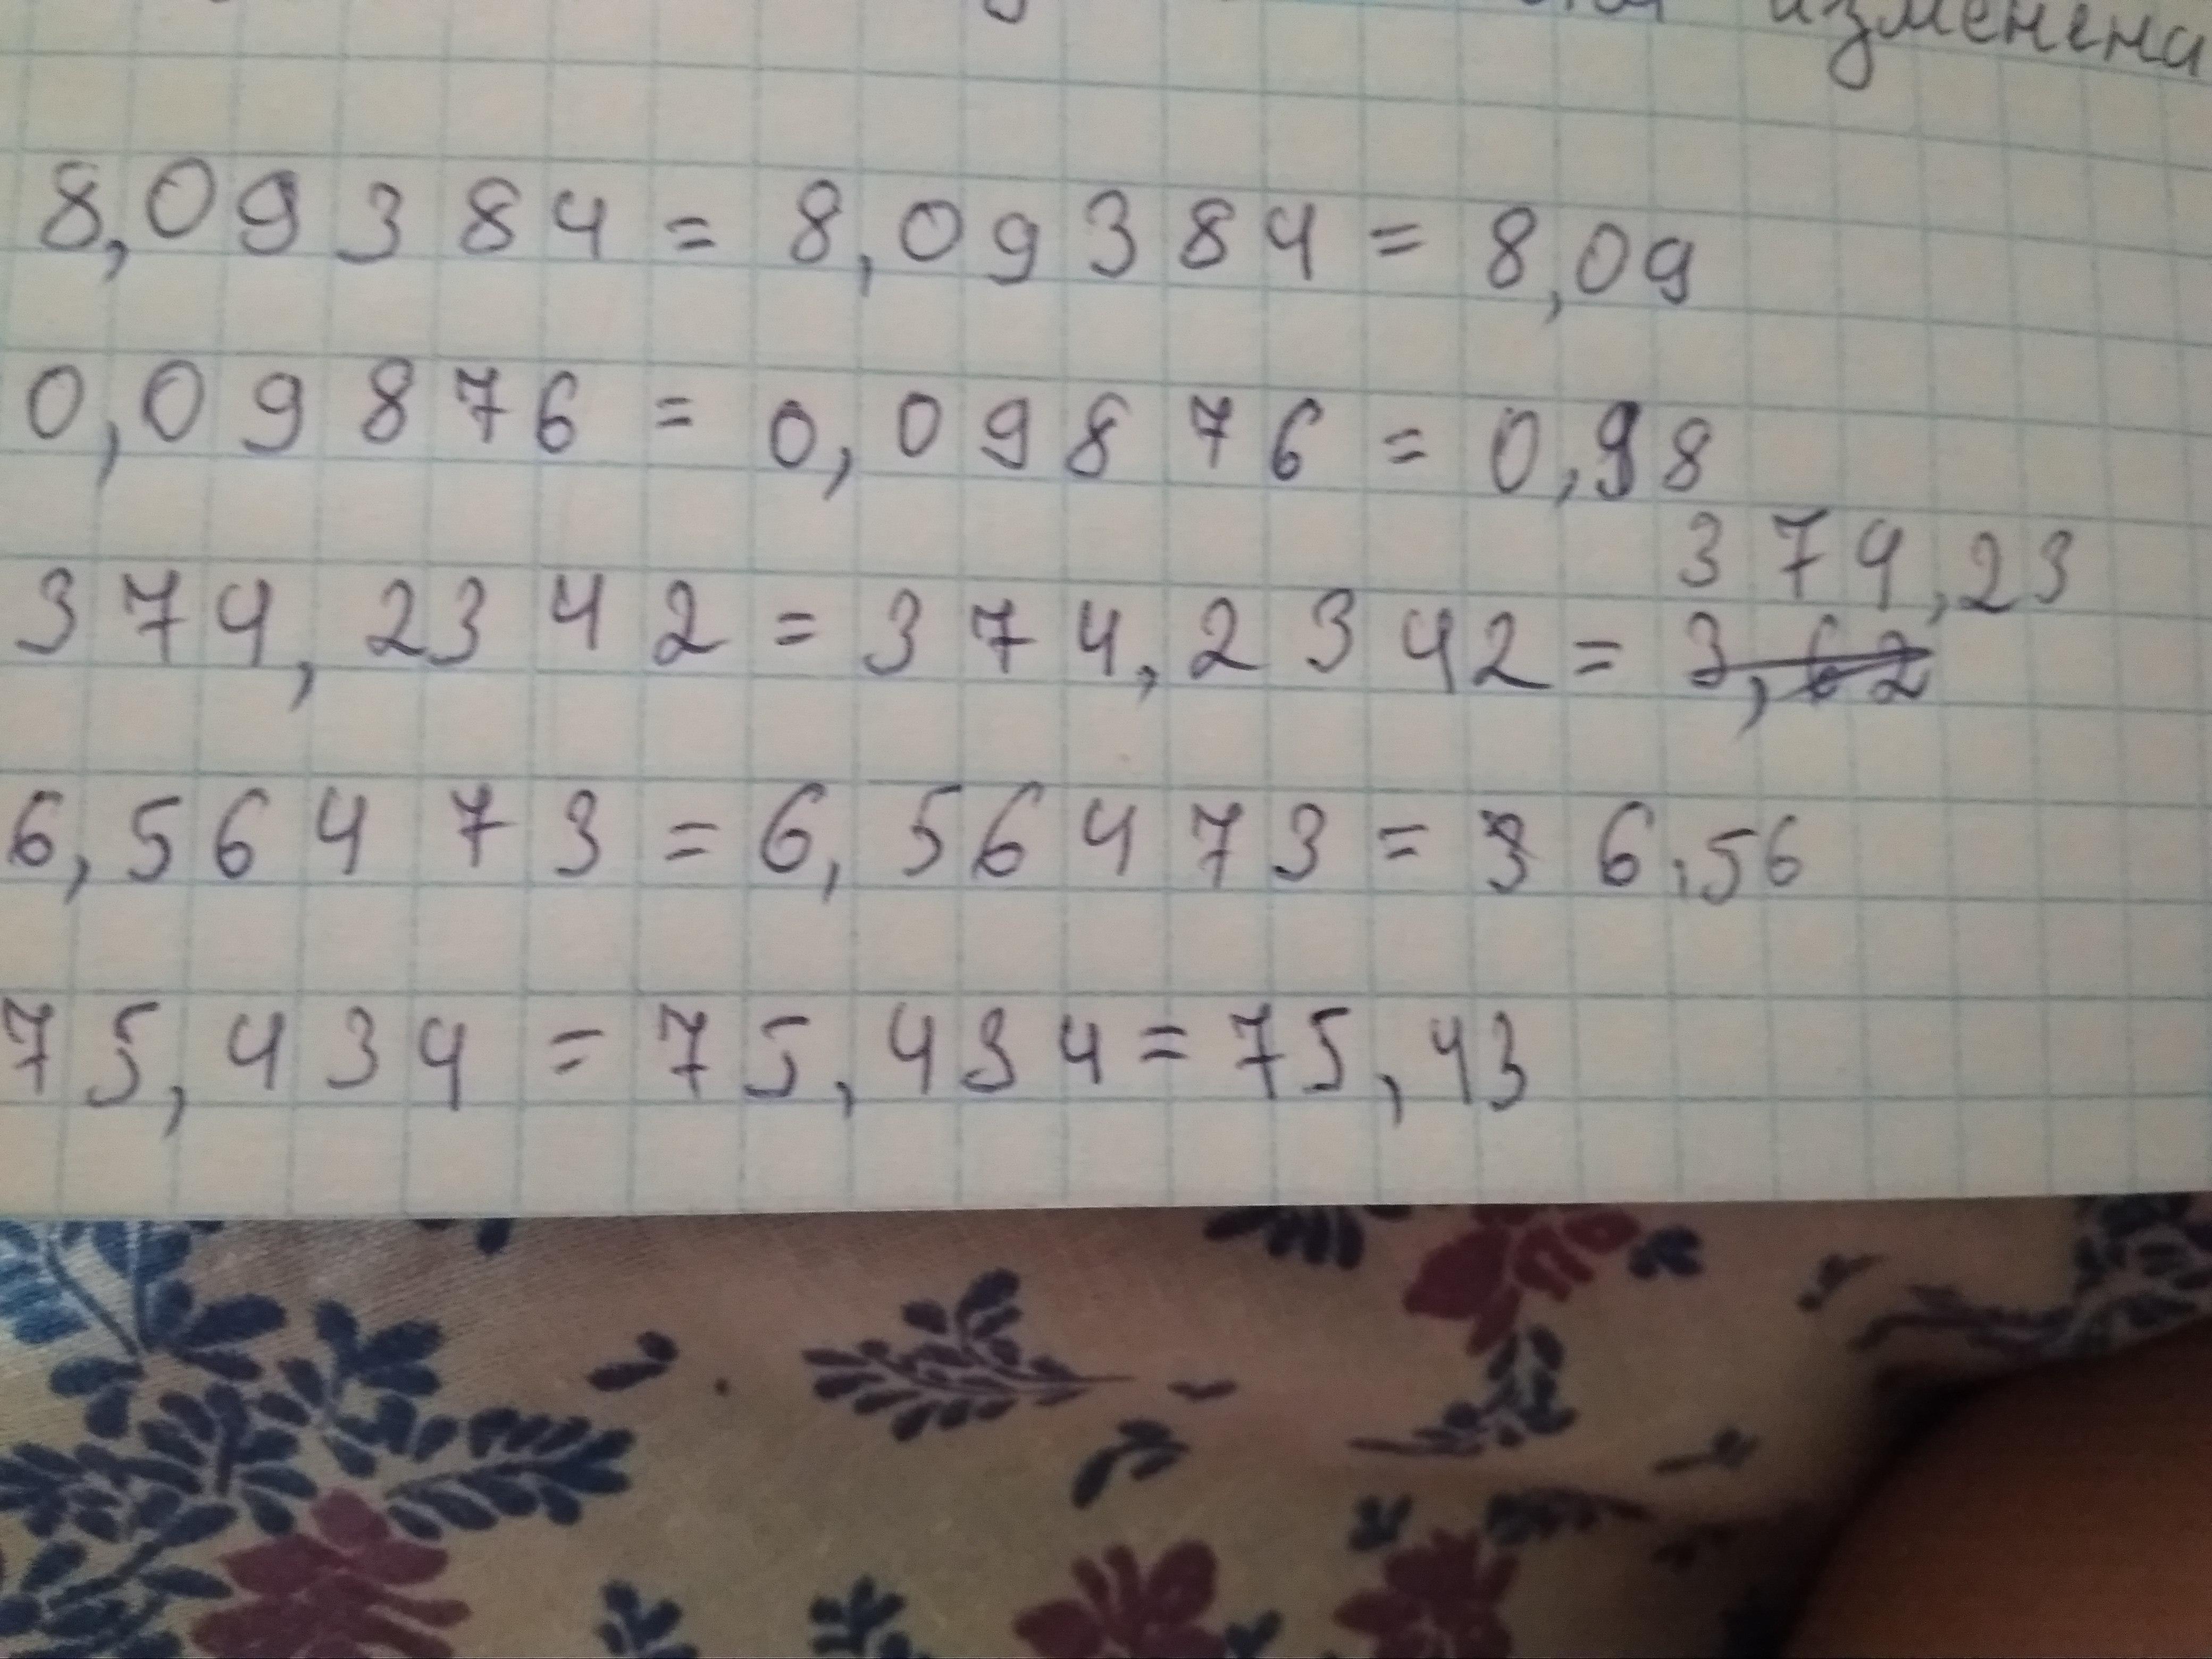 изменена
8,09384 = 8,09384 = 8,09
0,09876 = 0,09876 = 0,98
374,23
374,2342 = 374,2342 = 3,62
6,56473 = 6,56473 = 3 6,56
75,434 = 75,434 = 75,43